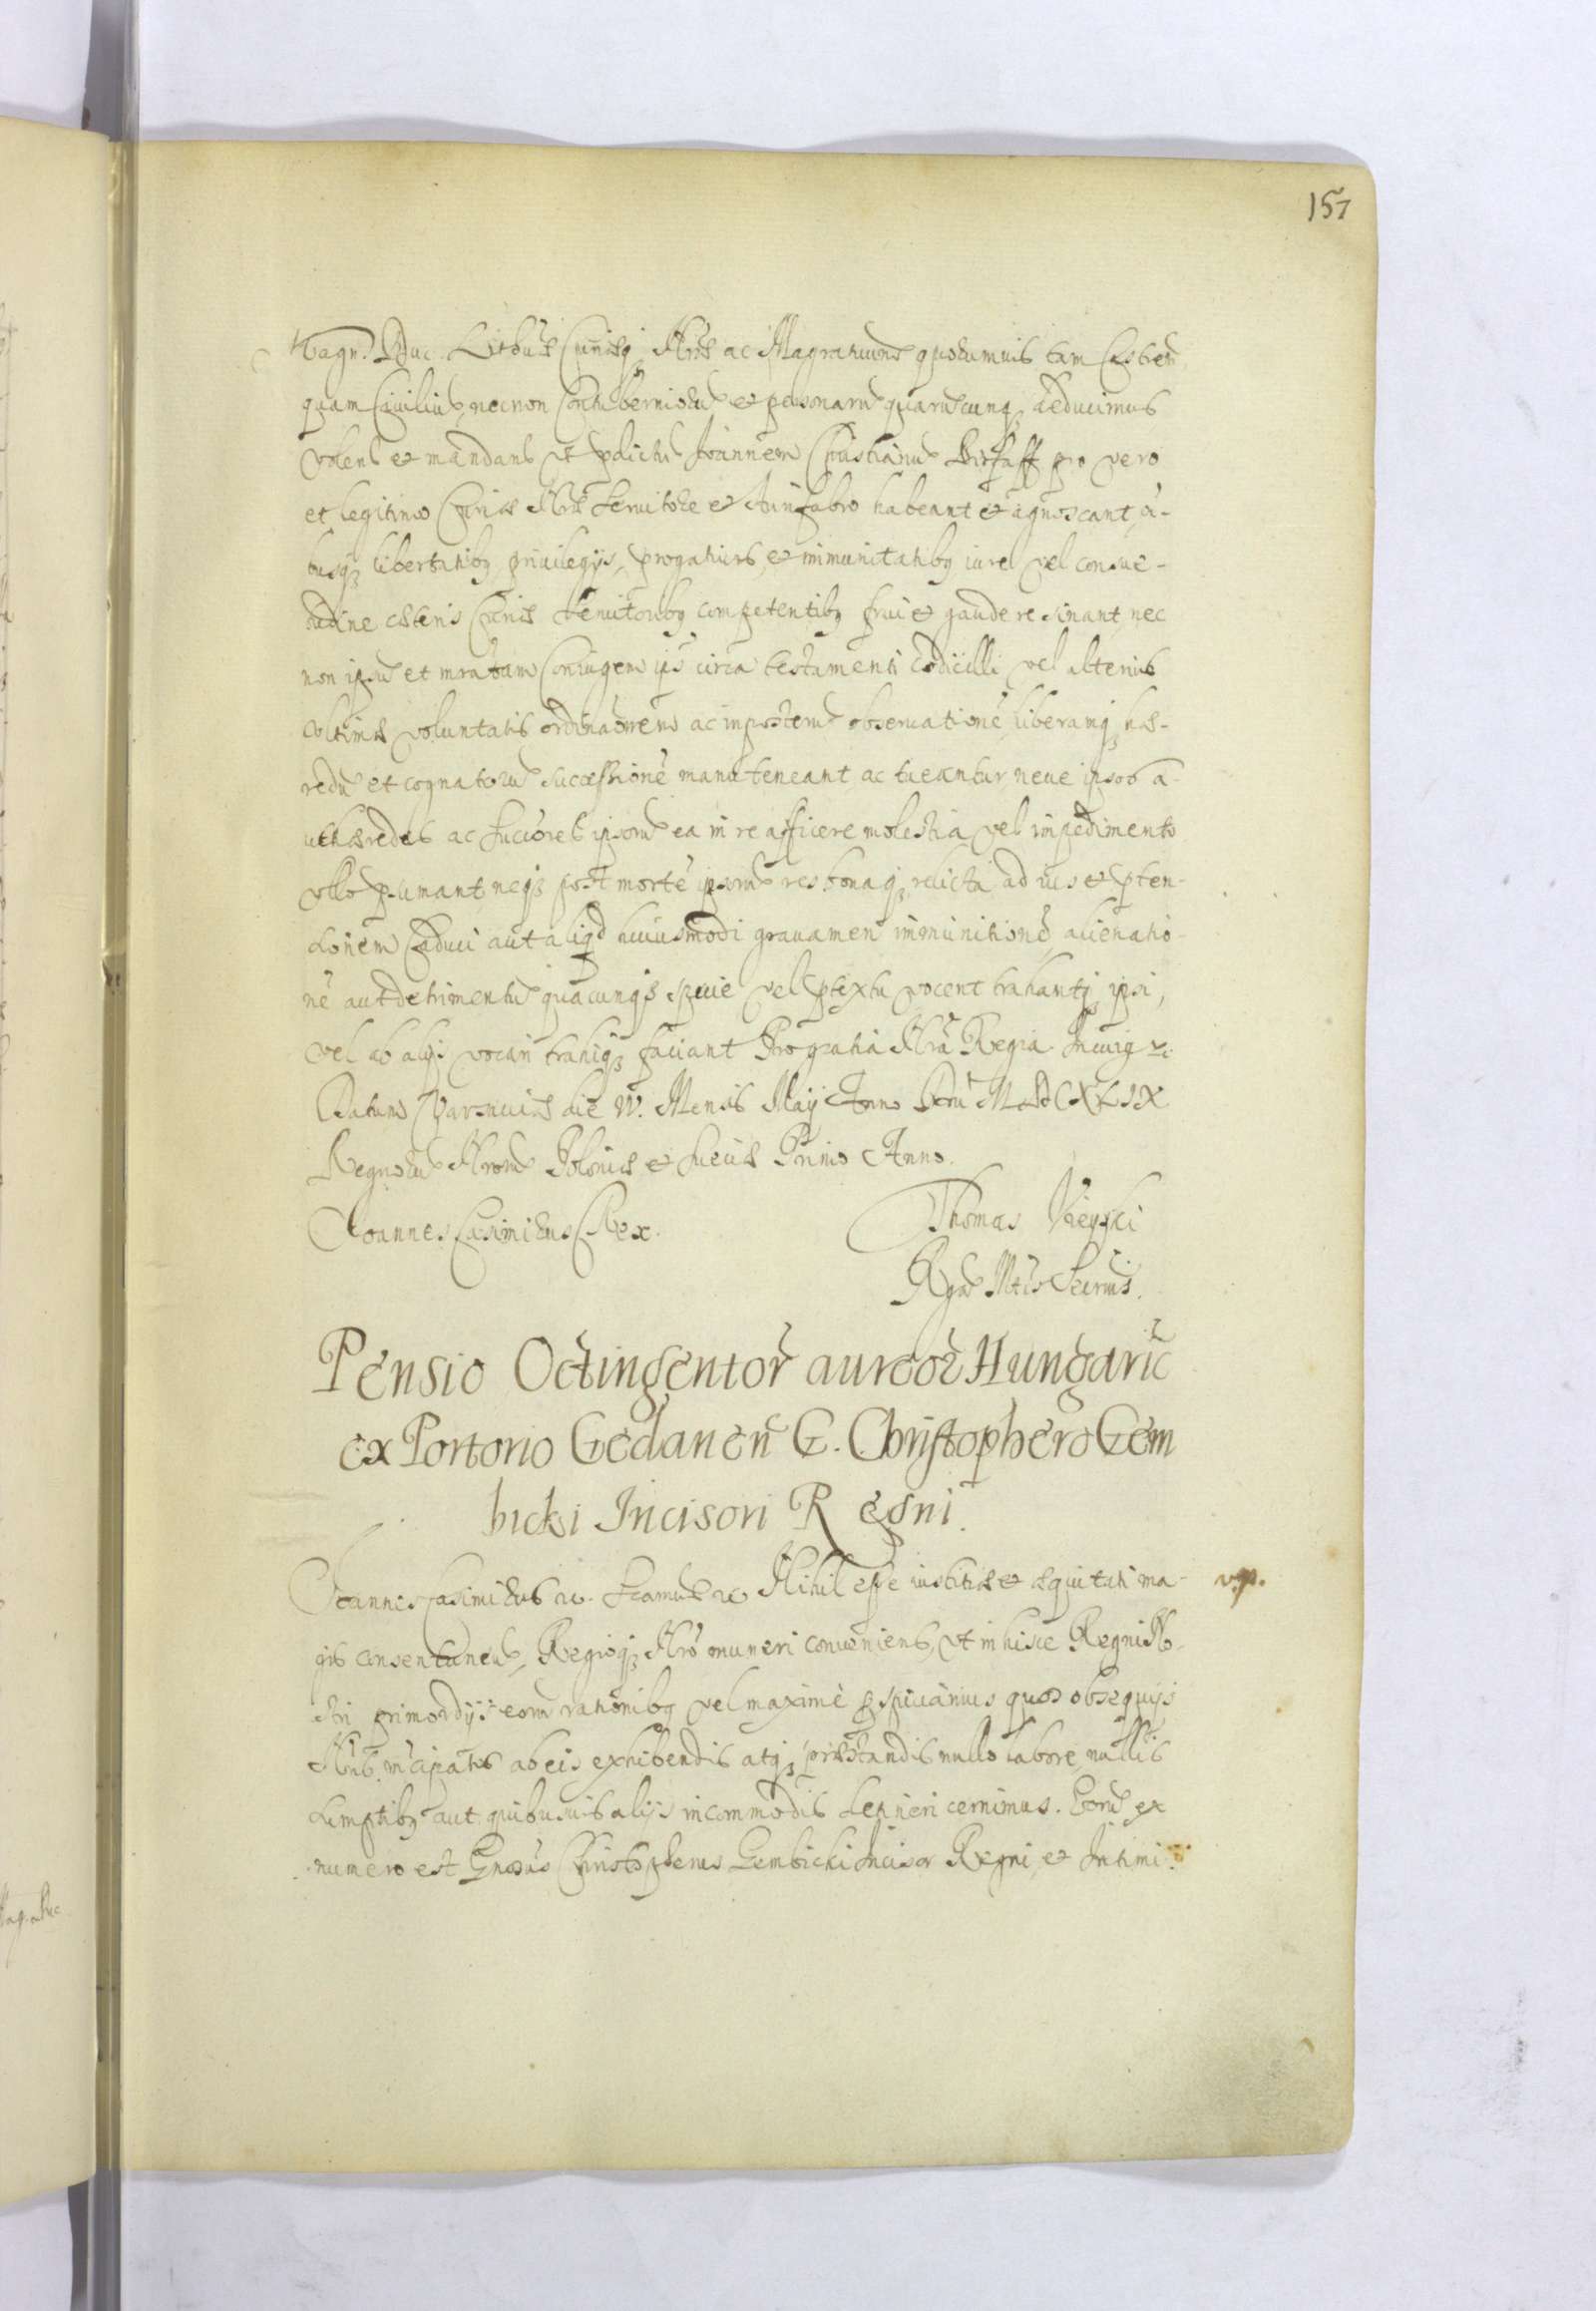 157
Magn. Duc. Lithuae Curiisq; Nrae ac Magratuum quorumvis tam Castren
quam Civiliu, necnon Contuberniorum et personaru quarumcunq deducimus
volens et mandans ut pdictu Joannem Christianu pro vero
et legitimo Curiae Nrae Servitore et Aurifabro habeant et agnoscant, o-
busq; libertatibq privilegijs, prrogativis, et immunitatibq iure vel consue-
tudine caeteris Curiae Servitoribq competentibq frui et gaudere sinant, nec
non ipsu et Coniugem eis circa testamenti Codicilli vel alterius
Ultimae voluntatis ordinaonem ac imposterum observatione, liberamq; hae-
redu et cognatoru successione manuteneant ac tueantur, neve ipsos a-
ut haeredes ac Succores ipsoru ea in re afficere molestia vel impedimento
ullo psumant, neq; post morte ipsoru res bonaq; relicta ad ius et pten-
sionem Caduci aut aliqd huiusmodi gravamen imminutione, alienatio-
ne aut detrimentu quacunq; specie vel ptextu vocent trahantq; ipsi,
vel ab alijs vocari trahiq; faciant Pro gratia Nra Regia. In cuius rei
Datum Varsaviae die IV. Mensis Maij Anno Dni MDCXLIX
Regnoru Nroru Poloniae et Sueciae Primo Anno.
Joannes Casimirus Rex.
Thomas Uieyski
Rgae Mtis Secrius.
Pensio Octingentor aureor Hungaric
ex Portorio Gedanen G. Christophero Gem
bicki Incisori Regni.
Joannes Casimirus etc. Scamus etc Nihil esse iustitiae et aequitati ma-
v.p.
gis consentaneu, Regioq; Nro muneri conveniens, ut in hisce Regni No-
stri primordijs eoru rationibq vel maxime pspiciamus quos obsequijs
Nris ab eis exhibendis atq; praestandis nullo labore nullis
sumptibq aut quibusvis alijs incommodis deterreri cernimus. Eoru ex
numero est Gnosus Christopherus Gembicki Incisor Regni, et Intimi